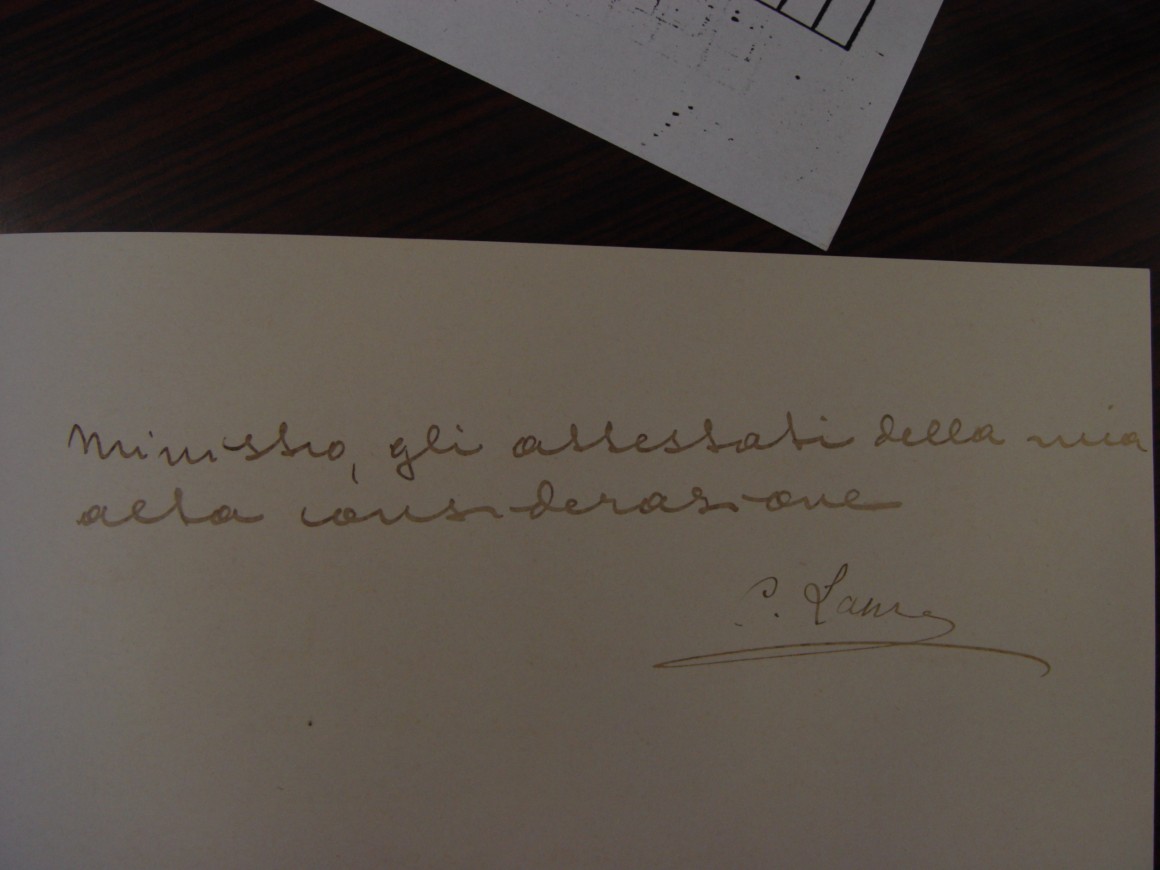 Ministro, gli attestati della mia
alta considerazione